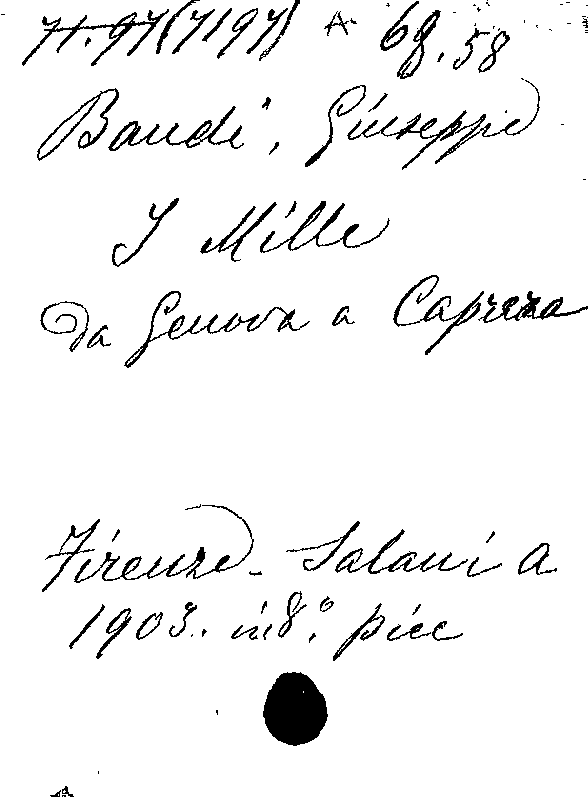 71.97 (7197) A 68.58
Bandi, Giuseppe
I Mille
Da Genova a Caprera
Firenze - Salani A
1903. in 8.° picc